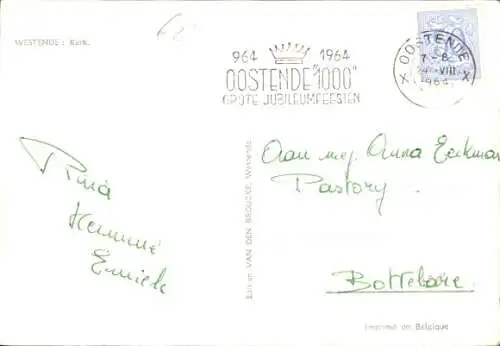 WESTENDE : Kerk.
964 1964
OOSTENDE "1000"
GROTE JUBILEUMFEESTEN
X OOSTENDE X
7 - 8
VIII
1964
Aan mej. Anna Eeckman
Pastory
Bottelare.
Tina
Emiele
Edit. VAN DEN BROUCKE, Westende
Imprimé en Belgique